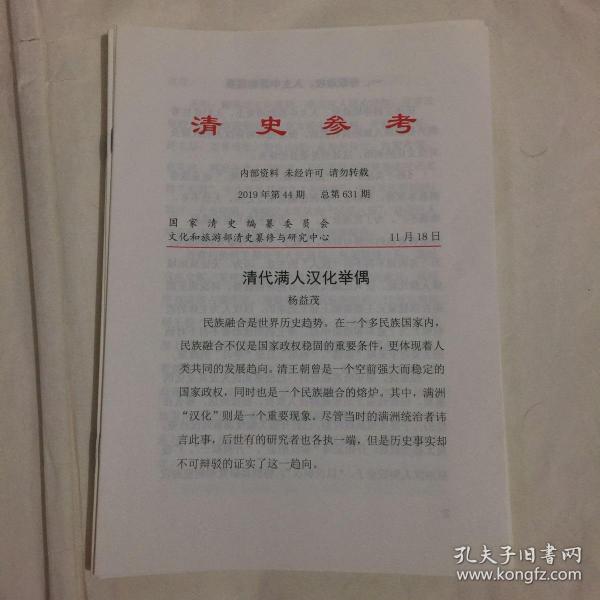 清史参考
内部资料 未经许可 请勿转载
2019年第44期 总第631期
国家清史编纂委员会
文化和旅游部清史纂修与研究中心 11月18日
清代满人汉化举偶
杨益茂
民族融合是世界历史趋势。在一个多民族国家内，
民族融合不仅是国家政权稳固的重要条件，更体现着人
类共同的发展趋向。清王朝曾是一个空前强大而稳定的
国家政权，同时也是一个民族融合的熔炉。其中，满洲
“汉化”则是一个重要现象。尽管当时的满洲统治者讳
言此事，后世有的研究者也各执一端，但是历史事实却
不可辩驳的证实了这一趋向。
孔夫子旧书网
www.kongfz.com